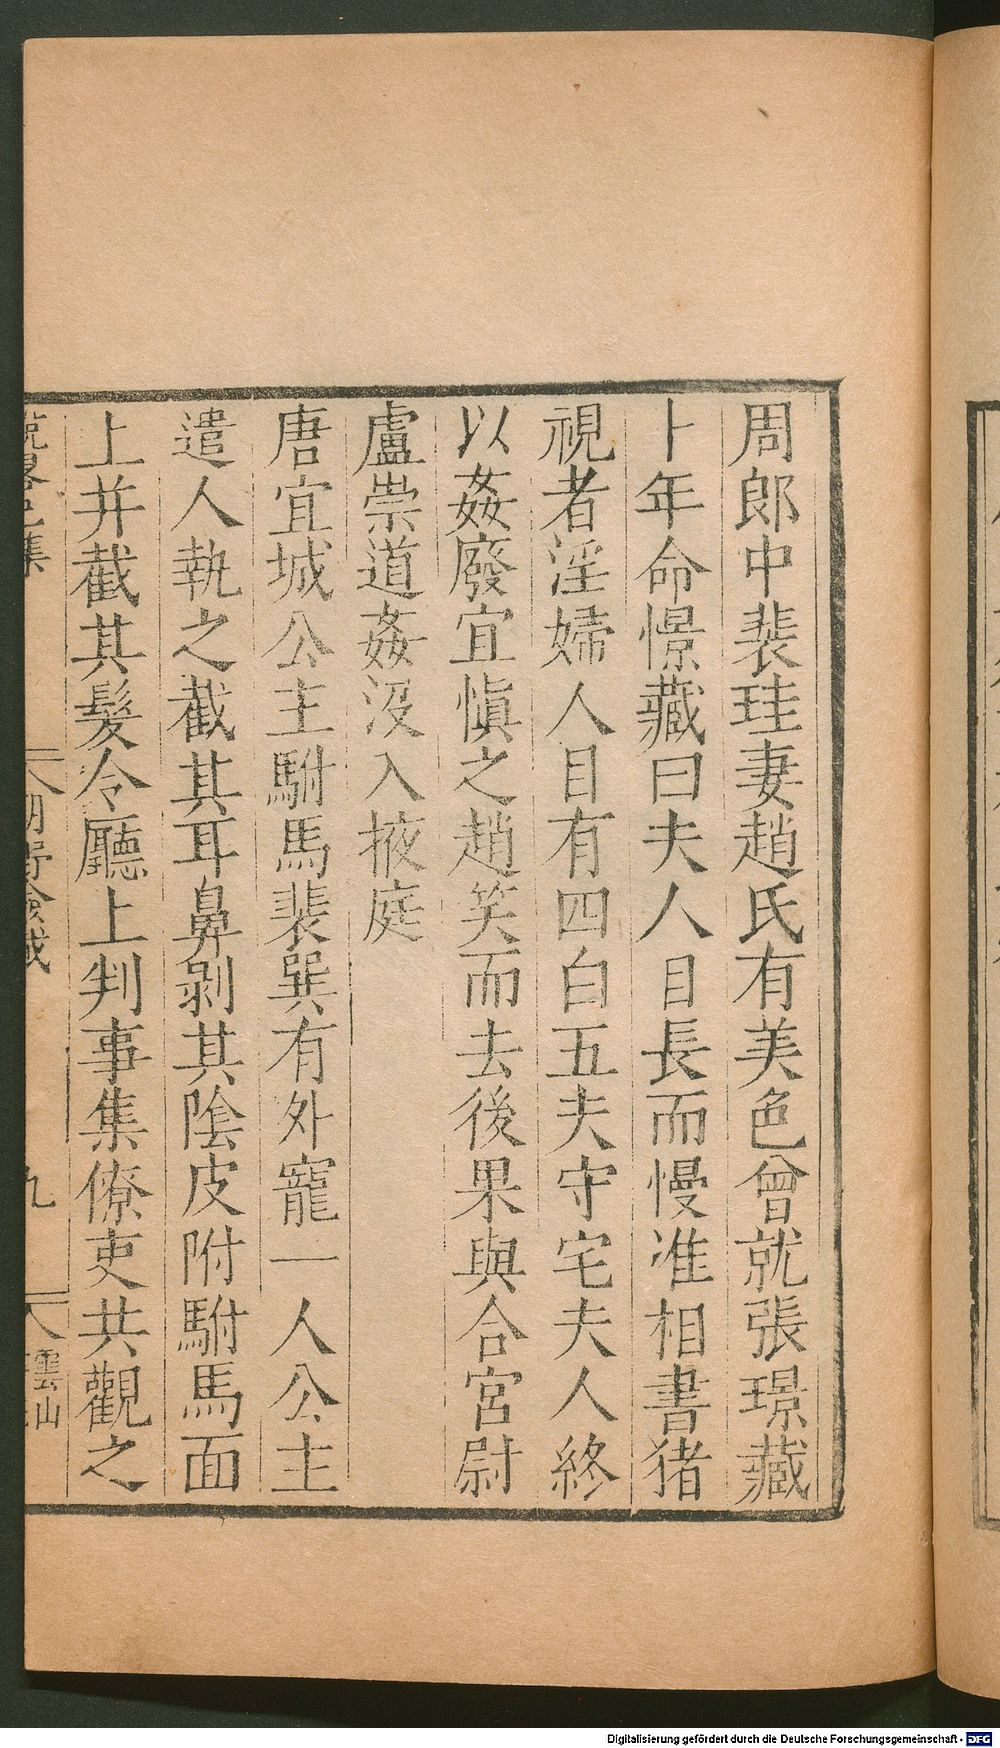 周郎中裴珪妻趙氏有美色曾就張璟藏
卜年命憬藏曰夫人目長而慢准相書猪
視者淫婦人目有四白五夫守宅夫人終
以姦廢宜慎之趙笑而去後果與合宮尉
盧崇道姦沒入掖庭
唐宜城公主駙馬裴巽有外寵一人公主
遣人執之截其耳鼻剥其陰皮附駙馬面
上并截其髮令廳上判事集僚吏共觀之
説畧己集
朝野僉載
九
雲山
Digitalisierung gefördert durch die Deutsche Forschungsgemeinschaft - DFG